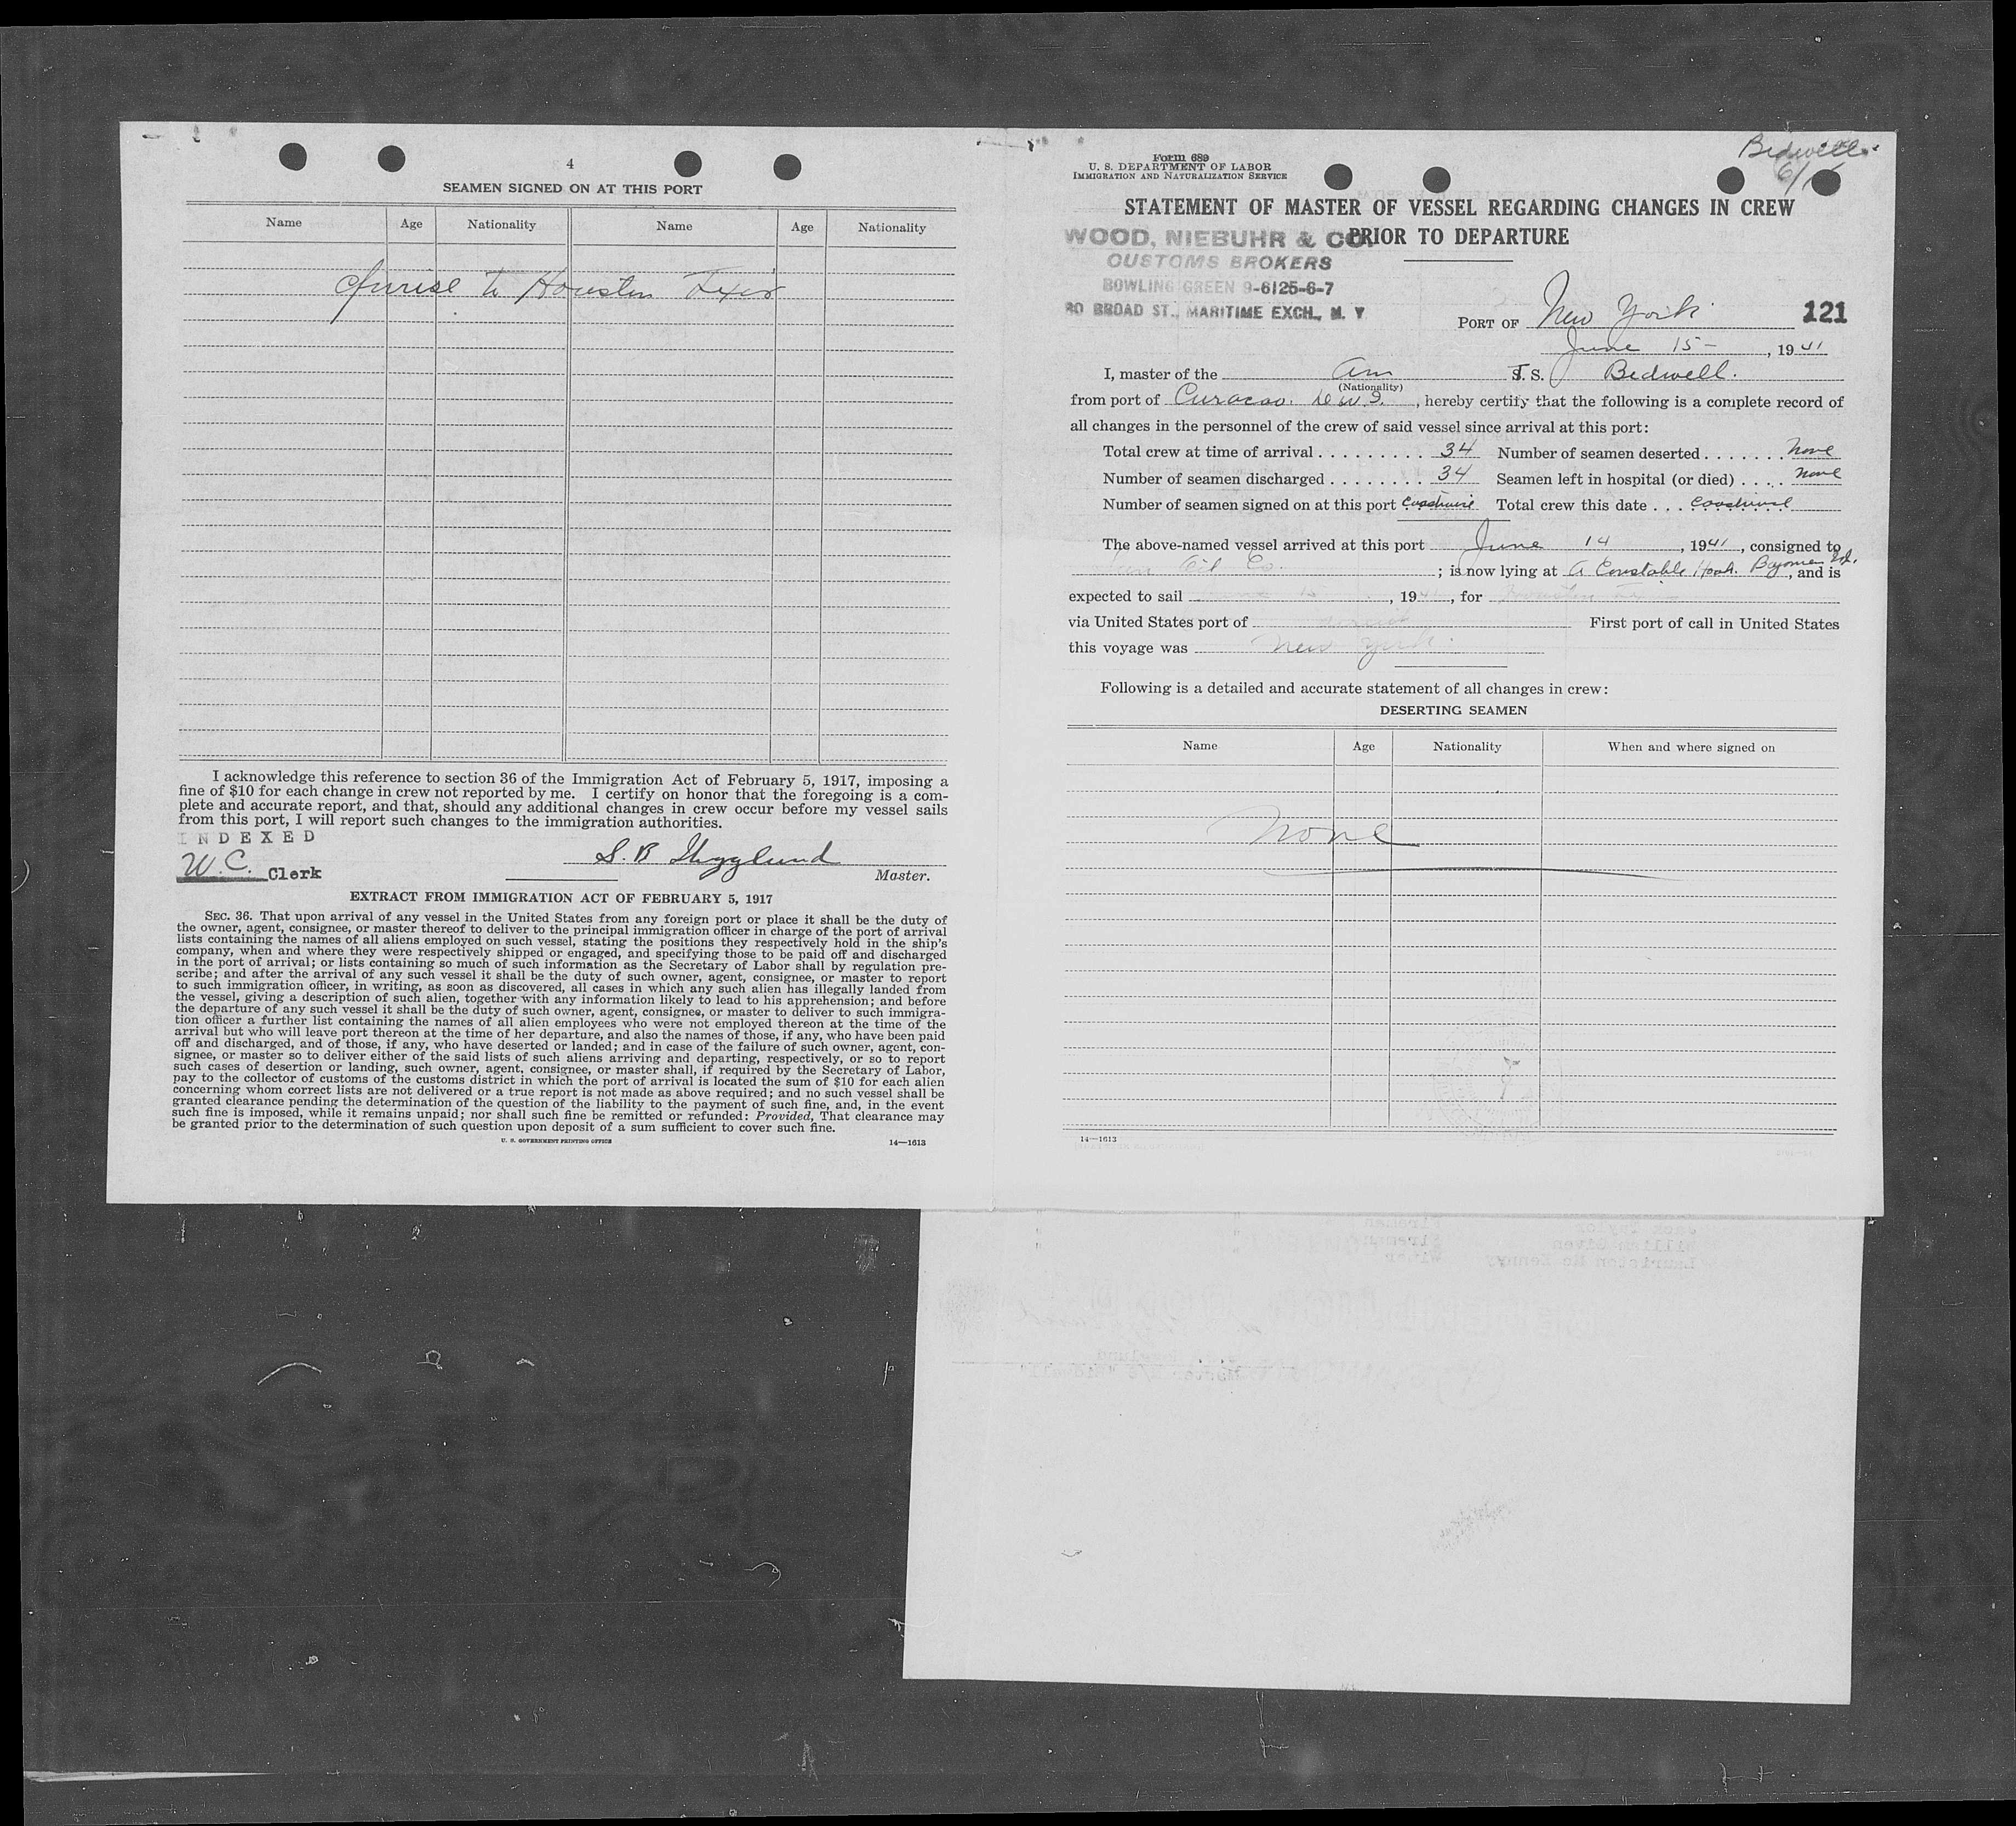 4
SEAMEN SIGNED ON AT THIS PORT
Name Age Nationality Name Age Nationality
to Houston Texas
I acknowledge this reference to section 36 of the Immigration Act of February 5, 1917, imposing a
fine of $10 for each change in crew not reported by me. I certify on honor that the foregoing is a com-
plete and accurate report, and that, should any additional changes in crew occur before my vessel sails
from this port, I will report such changes to the immigration authorities.
INDEXED
W. C. Clerk
S. B
Master.
EXTRACT FROM IMMIGRATION ACT OF FEBRUARY 5, 1917
SEC. 36. That upon arrival of any vessel in the United States from any foreign port or place it shall be the duty of
the owner, agent, consignee, or master thereof to deliver to the principal immigration officer in charge of the port of arrival
lists containing the names of all aliens employed on such vessel, stating the positions they respectively hold in the ship's
company, when and where they were respectively shipped or engaged, and specifying those to be paid off and discharged
in the port of arrival; or lists containing so much of such information as the Secretary of Labor shall by regulation pre-
scribe; and after the arrival of any such vessel it shall be the duty of such owner, agent, consignee, or master to report
to such immigration officer, in writing, as soon as discovered, all cases in which any such alien has illegally landed from
the vessel, giving a description of such alien, together with any information likely to lead to his apprehension; and before
the departure of any such vessel it shall be the duty of such owner, agent, consignee, or master to deliver to such immigra-
tion officer a further list containing the names of all alien employees who were not employed thereon at the time of the
arrival but who will leave port thereon at the time of her departure, and also the names of those, if any, who have been paid
off and discharged, and of those, if any, who have deserted or landed; and in case of the failure of such owner, agent, con-
signee, or master so to deliver either of the said lists of such aliens arriving and departing, respectively, or so to report
such cases of desertion or landing, such owner, agent, consignee, or master shall, if required by the Secretary of Labor,
pay to the collector of customs of the customs district in which the port of arrival is located the sum of $10 for each alien
concerning whom correct lists are not delivered or a true report is not made as above required; and no such vessel shall be
granted clearance pending the determination of the question of the liability to the payment of such fine, and, in the event
such fine is imposed, while it remains unpaid; nor shall such fine be remitted or refunded: Provided, That clearance may
be granted prior to the determination of such question upon deposit of a sum sufficient to cover such fine.
U. S. GOVERNMENT PRINTING OFFICE 14—1613
Bidwell
Form 689
U. S. DEPARTMENT OF LABOR
IMMIGRATION AND NATURALIZATION SERVICE
STATEMENT OF MASTER OF VESSEL REGARDING CHANGES IN CREW
PRIOR TO DEPARTURE
WOOD, NIEBUHR & CO.
CUSTOMS BROKERS
BOWLING GREEN 9-6125-6-7
80 BROAD ST., MARITIME EXCH., N. Y.
PORT OF New York 121
June 15 - , 1941
I, master of the Am S. S. Bidwell.
(Nationality)
from port of Curacao. D.W.I. , hereby certify that the following is a complete record of
all changes in the personnel of the crew of said vessel since arrival at this port:
Total crew at time of arrival . . . . . . . . . . 34 Number of seamen deserted . . . . . . . None
Number of seamen discharged . . . . . . . . 34 Seamen left in hospital (or died) . . . . None
Number of seamen signed on at this port Coastwise Total crew this date . . . Coastwise
The above-named vessel arrived at this port June 14 , 1941 , consigned to
Sun Oil Co. ; is now lying at Constable Hook. Bayonne N.J. , and is
expected to sail June 15 , 1941 , for Houston
via United States port of direct First port of call in United States
this voyage was New York.
Following is a detailed and accurate statement of all changes in crew:
DESERTING SEAMEN
Name Age Nationality When and where signed on
None
14—1613